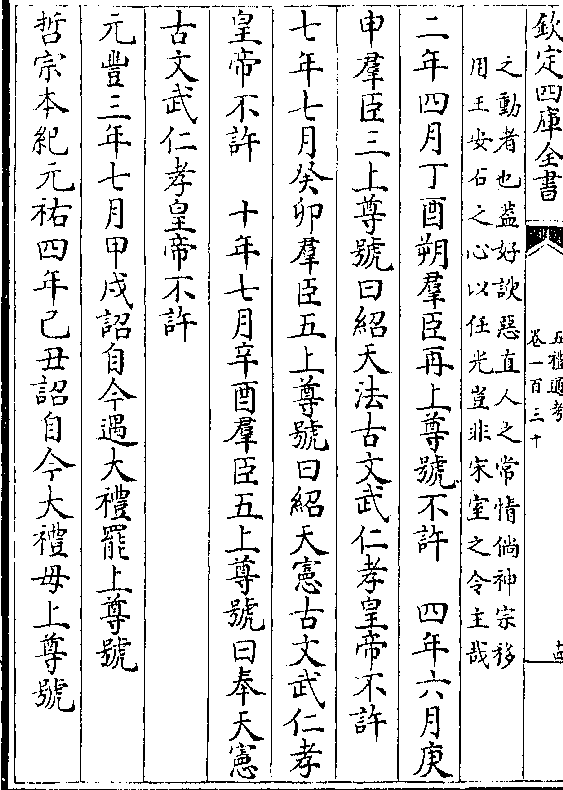 欽定四庫全書
五禮通考
卷一百三十
之動者也葢好諛惡直人之常情倘神宗移
用王安石之心以任光豈非宋室之令主哉
二年四月丁酉朔羣臣再上尊號不許　四年六月庚
申羣臣三上尊號曰紹天法古文武仁孝皇帝不許
七年七月癸卯羣臣五上尊號曰紹天憲古文武仁孝
皇帝不許　十年七月辛酉羣臣五上尊號曰奉天憲
古文武仁孝皇帝不許
元豐三年七月甲戌詔自今遇大禮罷上尊號
哲宗本紀元祐四年己丑詔自今大禮毋上尊號